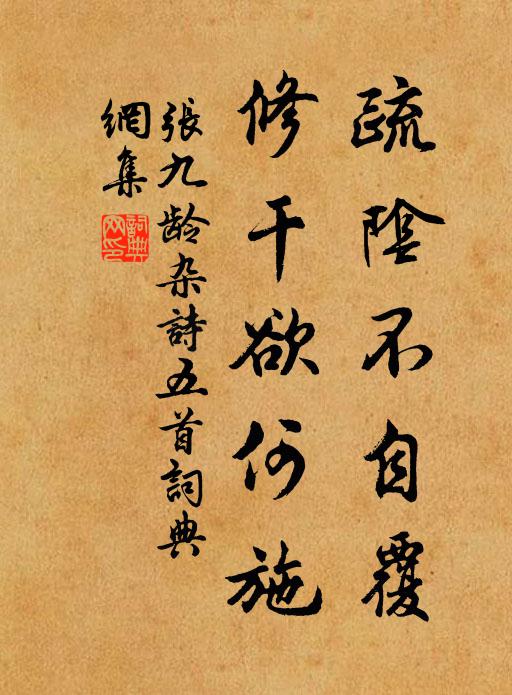 疏陰不自覆
修干欲何施
張九齡杂詩五首詞典
網集
詞典
网印